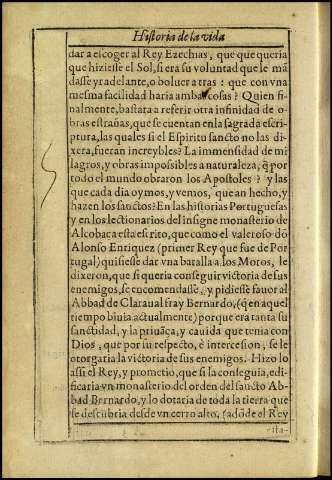 Historia de la vida
dar a elcoger al Rey Ezechias, que que queria
que hiziesse el Sol, si era su voluntad que le mã
dasse yr adelante, o boluer atras : que con vna
mesma facilidad haria ambas cosas? Quien fi-
nalmente, bastara a referir otra infinidad de o-
bras estrañas, que se cuentan en la sagrada escri-
ptura, las quales si el Espiritu sancto no las di-
xera, fueran increybles? La immensidad de mi
lagros, y obras imposibles a naturaleza, q̃ por
todo el mundo obraron los Apostoles? y las
que cada dia oymos, y vemos, que an hecho, y
hazen los sanctos? En las historias Portuguesas
y en los lectionarios del insigne monasterio de
Alcobaca esta escrito, que como el valeroso dõ
Alonso Enriquez (primer Rey que fue de Por-
tugal) quisiesse dar vna batalla a los Moros, le
dixeron, que si queria conseguir victoria de sus
enemigos, se encomendasse, y pidiesse fauor al
Abbad de Claraual fray Bernardo, (q̃ en aquel
tiempo biuia actualmente) porque era tanta su
sanctidad, y la priuãça, y cauida que tenia con
Dios, que por su respecto, e intercesion, se le
otorgaria la victoria de sus enemigos. Hizo lo
assi el Rey, y prometio, que si la conseguia, edi-
ficaria vn monasterio del orden del sancto Ab-
bad Bernardo, y lo dotaria de toda la tierra que
se descubria desde vn cerro alto, (adõde el Rey